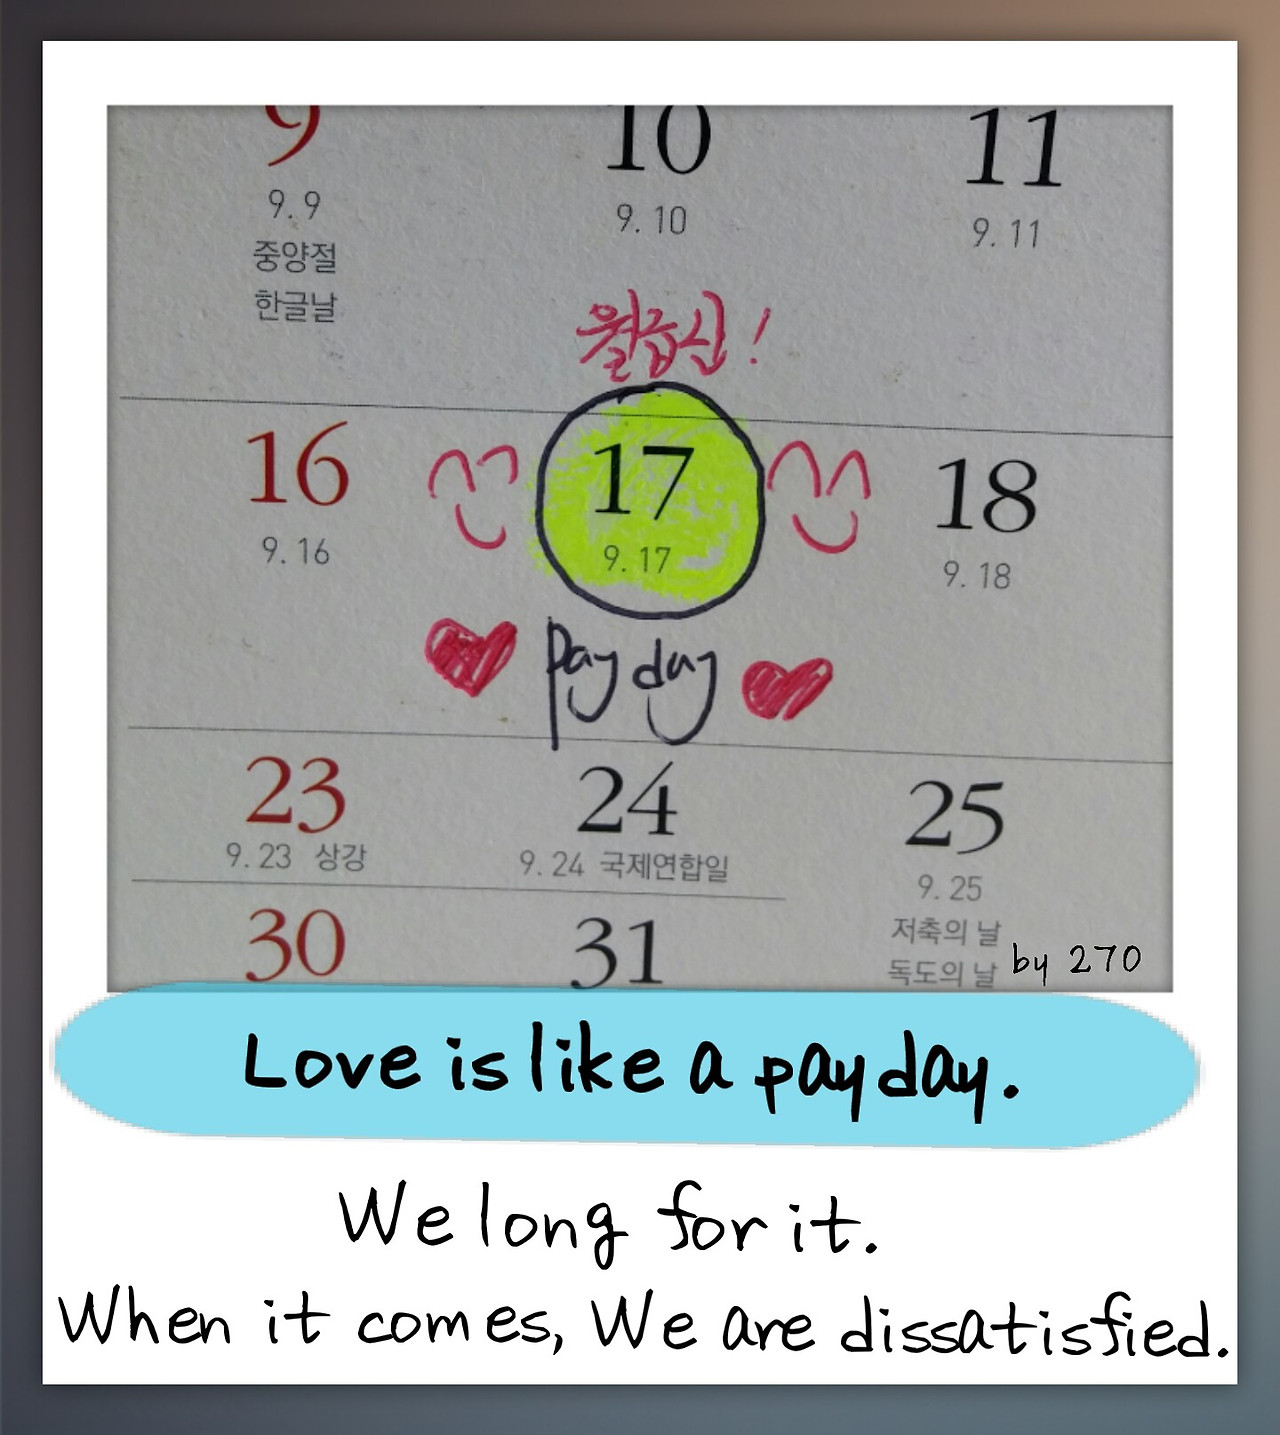 9 10 11
9.9 9.10 9.11
중양절
한글날
월급신!
16 17 18
9.16 9.17 9.18
pay day
23 24 25
9.23 상강 9.24 국제연합일 9.25
저축의 날
30 31 독도의 날
by 270
Love is like a pay day.
We long for it.
When it comes, We are dissatisfied.